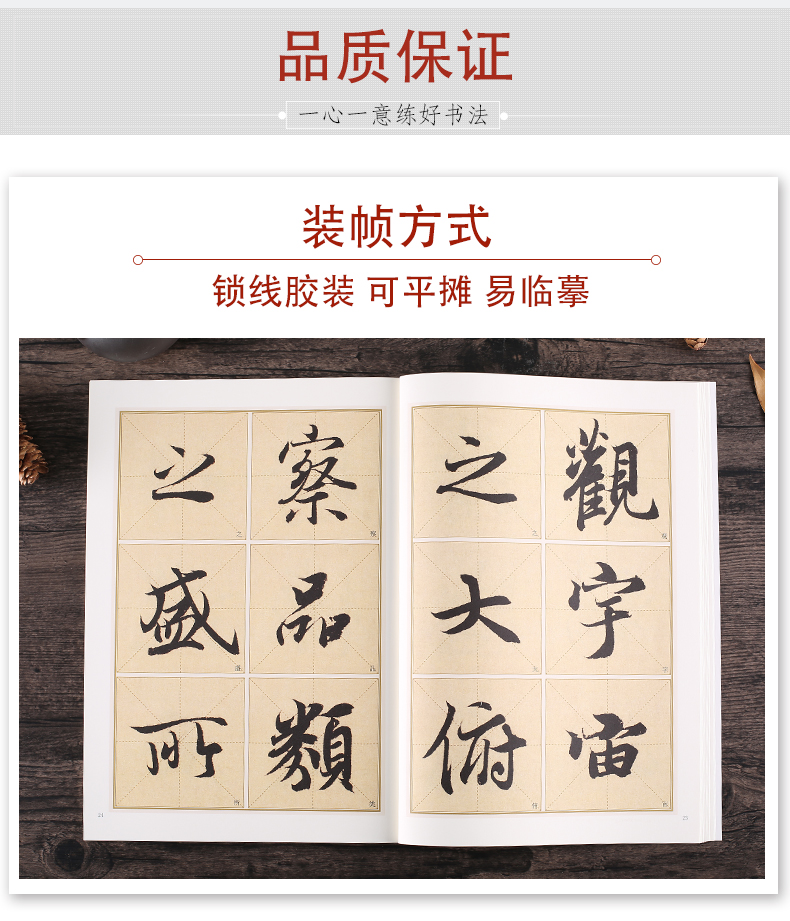 品质保证
一心一意练好书法
装帧方式
锁线胶装 可平摊 易临摹
觀宇宙
之大俯
察品類
之盛所